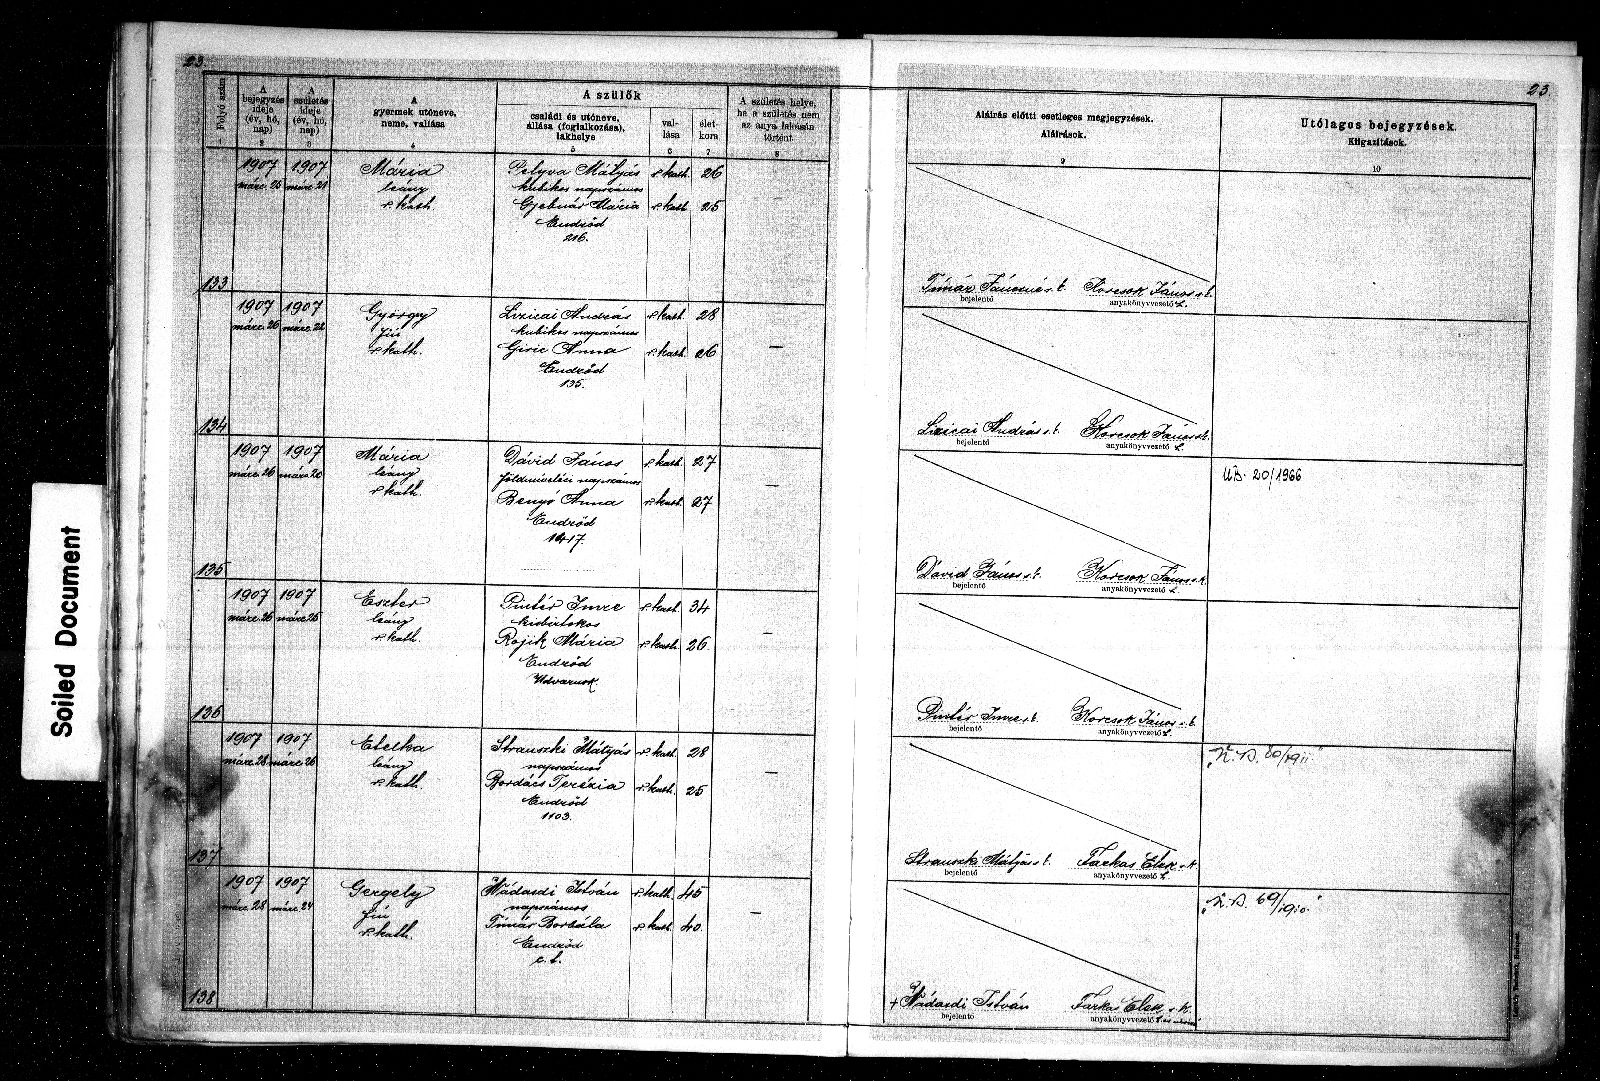 23
Folyó szám
A bejegyzés ideje (év, hó, nap)
A születés ideje (év, hó, nap)
A gyermek utóneve, neme, vallása
A szülők
családi és utóneve, állása (foglalkozása), lakhelye
vallása
életkora
A születés helye, ha a születés nem az anya lakásán történt
1 2 3 4 5 6 7 8
1907 1907 Mária Pelyva Mátyás r. kath. 26
márc. 26 leány kubikos napszámos
r. kath Mária r. kath 25
Endrőd
216.
133
1907 1907 György Lizicai András r. kath. 28
márc. 26 márc. 22 fiú kubikos napszámos
r. kath. Giric Anna r. kath. 26
Endrőd
135.
134
1907 1907 Mária Dávid János r. kath. 27
márc. 26 márc. 20 leány földmívelési napszámos
r. kath. Benyó Anna r. kath. 27
Endrőd
135
1907 1907 Eszter Pintér Imre r. kath. 34
márc. 26 márc. 25 leány kisbirtokos
r. kath. Rojik Mária r. kath. 26
Endrőd
Udvarnok
136
1907 1907 Etelka Strauszki Mátyás r. kath. 28
márc. 28 márc. 26 leány napszámos
r. kath. Bordács Terézia r. kath. 25
Endrőd
1103.
137
1907 1907 Gergely Nádasdi István r. kath. 45
márc. 28 márc. 24 fiú napszámos
r. kath. Tímár Borbála r. kath. 40
Endrőd
138
23
Aláírás előtti esetleges megjegyzések.
Aláírások.
9
Utólagos bejegyzések.
Kiigazítások.
10
Tímár Jánosné s. t. Korcsok János s. t.
bejelentő anyakönyvvezető
Lizicai András s. t. Korcsok János s. t.
bejelentő anyakönyvvezető
UB. 20/1966
Dávid János s. t. Korcsok János s. k.
bejelentő anyakönyvvezető
Pintér Imre s. t. Korcsok János s. t.
bejelentő anyakönyvvezető
Strauszk Mátyás s. t. Farkas Elek s. k.
bejelentő anyakönyvvezető
+ Nádasdi István Farkas Elek s. k.
bejelentő anyakönyvvezető
Soiled Document